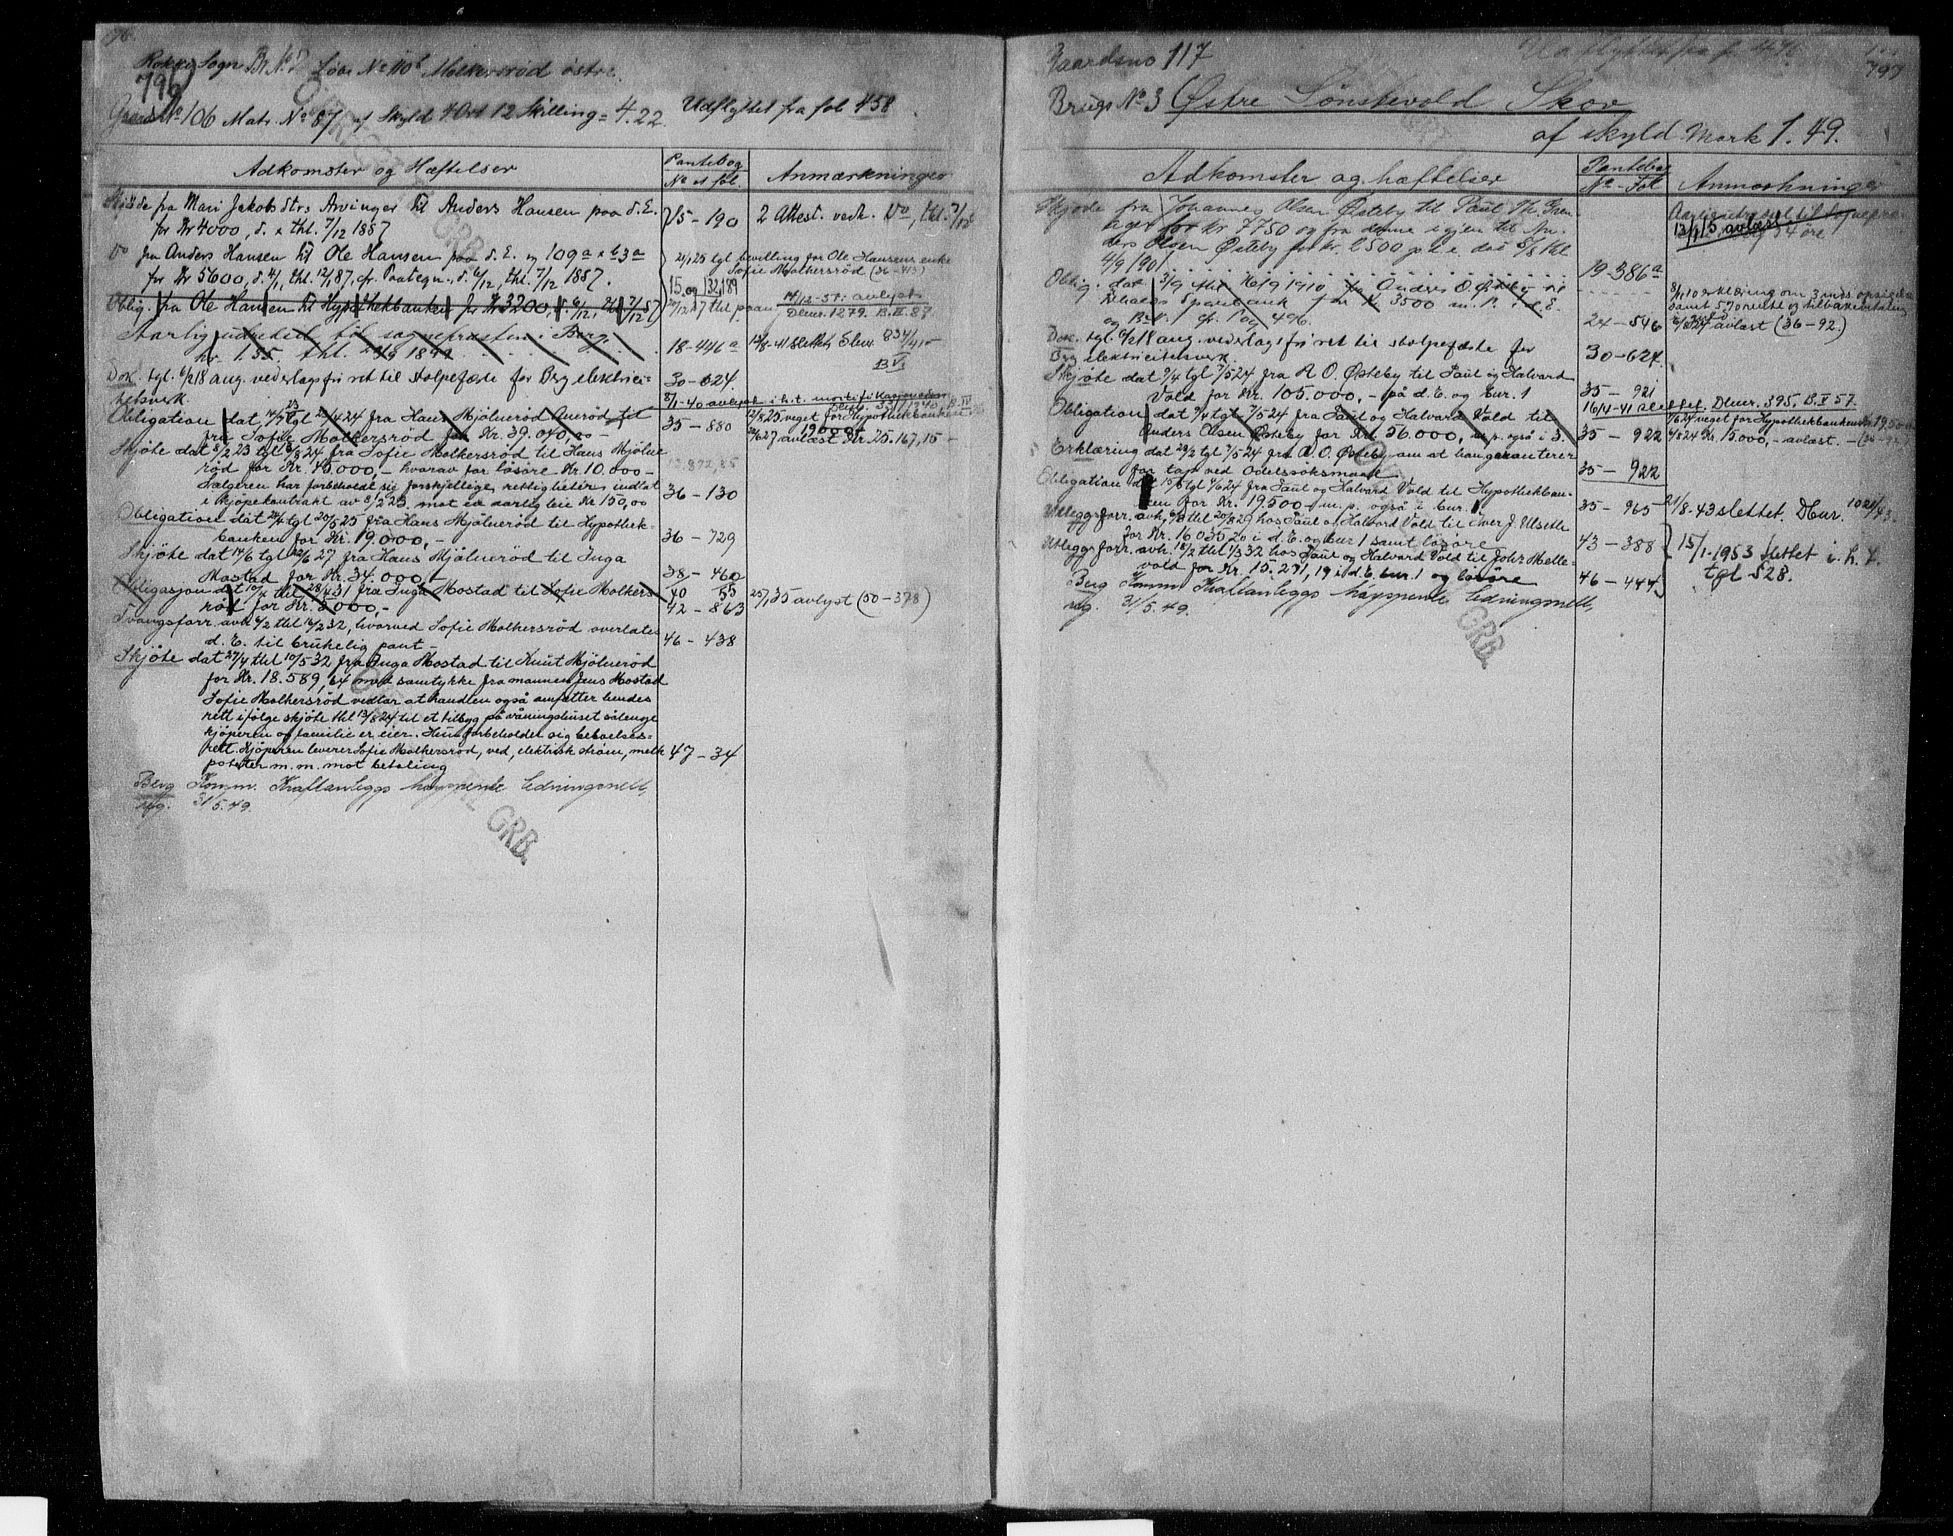 796
Rokke Sogn Br. No 2 Løbe No 110b Molkersrød østre
Gaards No 106 Matr. No 87 af Skyld 4 Ort 12 Skilling = 4.22. Udflyttet fra fol 458
Adkomster og Hæftelser
Pantebog
No og fol.
Anmærkninger
Skjøde fra Mari Jakobsdtrs Arvinger til Anders Hansen paa d. E.
for Kr 4000, d. & thl. 7/12 1887
15 - 190
2 Attest. vedk. Do, thl. 7/12
Do fra Anders Hansen til Ole Hansen paa d. E. og 109a
for Kr 5600, d. 4/1, thl. 12/1 87, cfr. Paategn. d. 6/12, thl. 7/12 1887.
15 og 132, 189
21/1 25 tgl bevilling for Ole Hansens enke
Sofie Molkersrød (36-413)
Oblig. fra Ole Hansen til Hypothekbanken for Kr 3200, d. 6/12, thl. 7/12 87
14/12-51: avlyst
Dbnr. 1279. B. II. 88.
Aarlig udredsel til sogneprasten i Berg
kr. 1.35, thl. 1899
18-446a
12/8-41 slettet Dbnr. 834/41
B V.
Dok. tgl. 6/2 18 ang. vederlagsfri ret til stolpefæste for Berg elektrici-
tetsverk.
30-624.
8/1-40 avlyst i h. t. mortifikasjonsdom
Obligation dat. 14/7 tgl 424 fra Hans Mjølnerød Anerød til
fru Sofie Molkersrød for Kr. 39.040,00 -
35 - 880
12/8 25 veget for Hypothekbanken
19000,-
27 avlast Kr. 25.167,15 -
Skjøte dat 8/2 23 tgl 13/8 24 fra Sofie Molkersrød til Hans Mjølne
rød for Kr. 45.000,- hvorav for løsøre Kr. 10.000 -
Sælgeren har forbeholdt sig forskjellige rettigheter indtat
i kjøpekontrakt av 8/2 23. mot en aarlig leie Kr 150,00
36 - 130
Obligation dat 24/4 tgl 20/5 25 fra Hans Mjølnerød til Hypothek-
banken for Kr. 19.000,-
36 - 729
Skjøte dat 14/6 tgl 22/6 27 fra Hans Mjølnerød til Inga
Mostad for Kr. 34.000,-
38 - 460
Obligasjon dat 10/4 thl 28/4 31 fra Inga Mostad til Sofie Molkers-
rød for Kr. 5000,-
40 55
42 - 863
25/1 35 avlyst (50-378)
Tvangsforr. avh 4/2 thl 16/2 32, hvorved Sofie Molkersrød overlates
d. E. til brukelig pant -
46 - 438
Skjøte dat 27/4 thl 10/5 32 fra Inga Mostad til Knut Mjølnerød
for Kr. 18.589,64 med samtykke fra mannen Jens Mostad
Sofie Molkersrød vedtar at handlen også omfatter hendes
rett ifølge skjøte thl 13/8 24 til et tilbyg på våningshuset sålenge
kjøperen og familie er eier. Hun forbeholder sig beboelses-
rett. Kjøperen leverer Sofie Molkersrød, ved, elektrisk strøm, melk
poteter m. m. mot betaling
47 - 34
Berg Komm. Kraftanleggs høyspente ledningsnett,
reg. 31/5.49.
GRB.
Gaardsno 117
Udflyttet fra f. 476.
797
Brugs No 3 Østre Sønstevold Skov
af skyld Mark 1.49.
Adkomster og hæftelser
Pantebog
No - Fol
Anmærkninger
Skjøde fra Johannes Olsen Østeby til Paul Th. Gren-
liger for Kr 7750 og fra denne igjen til An-
ders Olsen Østeby for kr. 2500 p. d. e dat 5/8 thl
4/9 1901
19-386a
Aarlig utredsel til sogneprsten
13/1 15 avlæst
54 øre
Oblig. dat. 3/9 thl 16/9 1910 fra Anders O. Østeby til
Sparebank for Kr 3500 m. P. i d. E.
og Br 1. cfr. fog 496.
24 - 546
8/1 10 erklæring om 3 mds opsigelse
avlæst (36-92.)
Dok. tgl. 6/2 18 ang. vederlagsfri ret til stolpefæste for
Berg elektricitetsverk.
30-624.
Skjøte dat 9/4 tgl 7/5 24 fra A O. Østeby til Paul og Halvard
Vold for Kr. 105.000,- på d. E. og bnr. 1
35 - 921
16/4-41 slettet. Dbnr. 395. B. V 57.
Obligation dat 9/4 tgl 7/5 24 fra Paul og Halvard Vold til
Anders Olsen Østeby for Kr. 56.000,
35 - 922
4/6 24 veget for Hypothekbanken Kr 19.500
4/6 24 Kr. 15.000,- avlæst. - (36-92.)
Erklæring dat 29/2 tgl 7/5 24 fra A. O. Østeby om at han garanterer
for tap ved Odelssøksmaal
35 - 922
Obligation dat 15/5 tgl 4/6 24 fra Paul og Halvard Vold til Hypothekban-
ken for Kr. 19.500 - m. p. også i bnr. 1
35 - 965
21/8-43 slettet. Dbnr. 1021/43.
Utleggsforr. avh. thl 20/8 29 hos Paul og Halvard Vold til Iver J. Ulsette
for Kr. 16 035.20 i d. E. og bnr 1 samt løsøre
43 - 388
Utleggsforr. avh. 18/2 thl 1/3 32 hos Paul og Halvard Vold til Johs Melle-
vold for Kr. 15.271,19 i d. E. bnr. 1 og løsøre
46 - 444
15/1-1953 slettet i. h. t.
tgl 528.
Berg Komm Kraftanleggs høyspente ledningsnett,
reg. 31/5.49.
GRB.